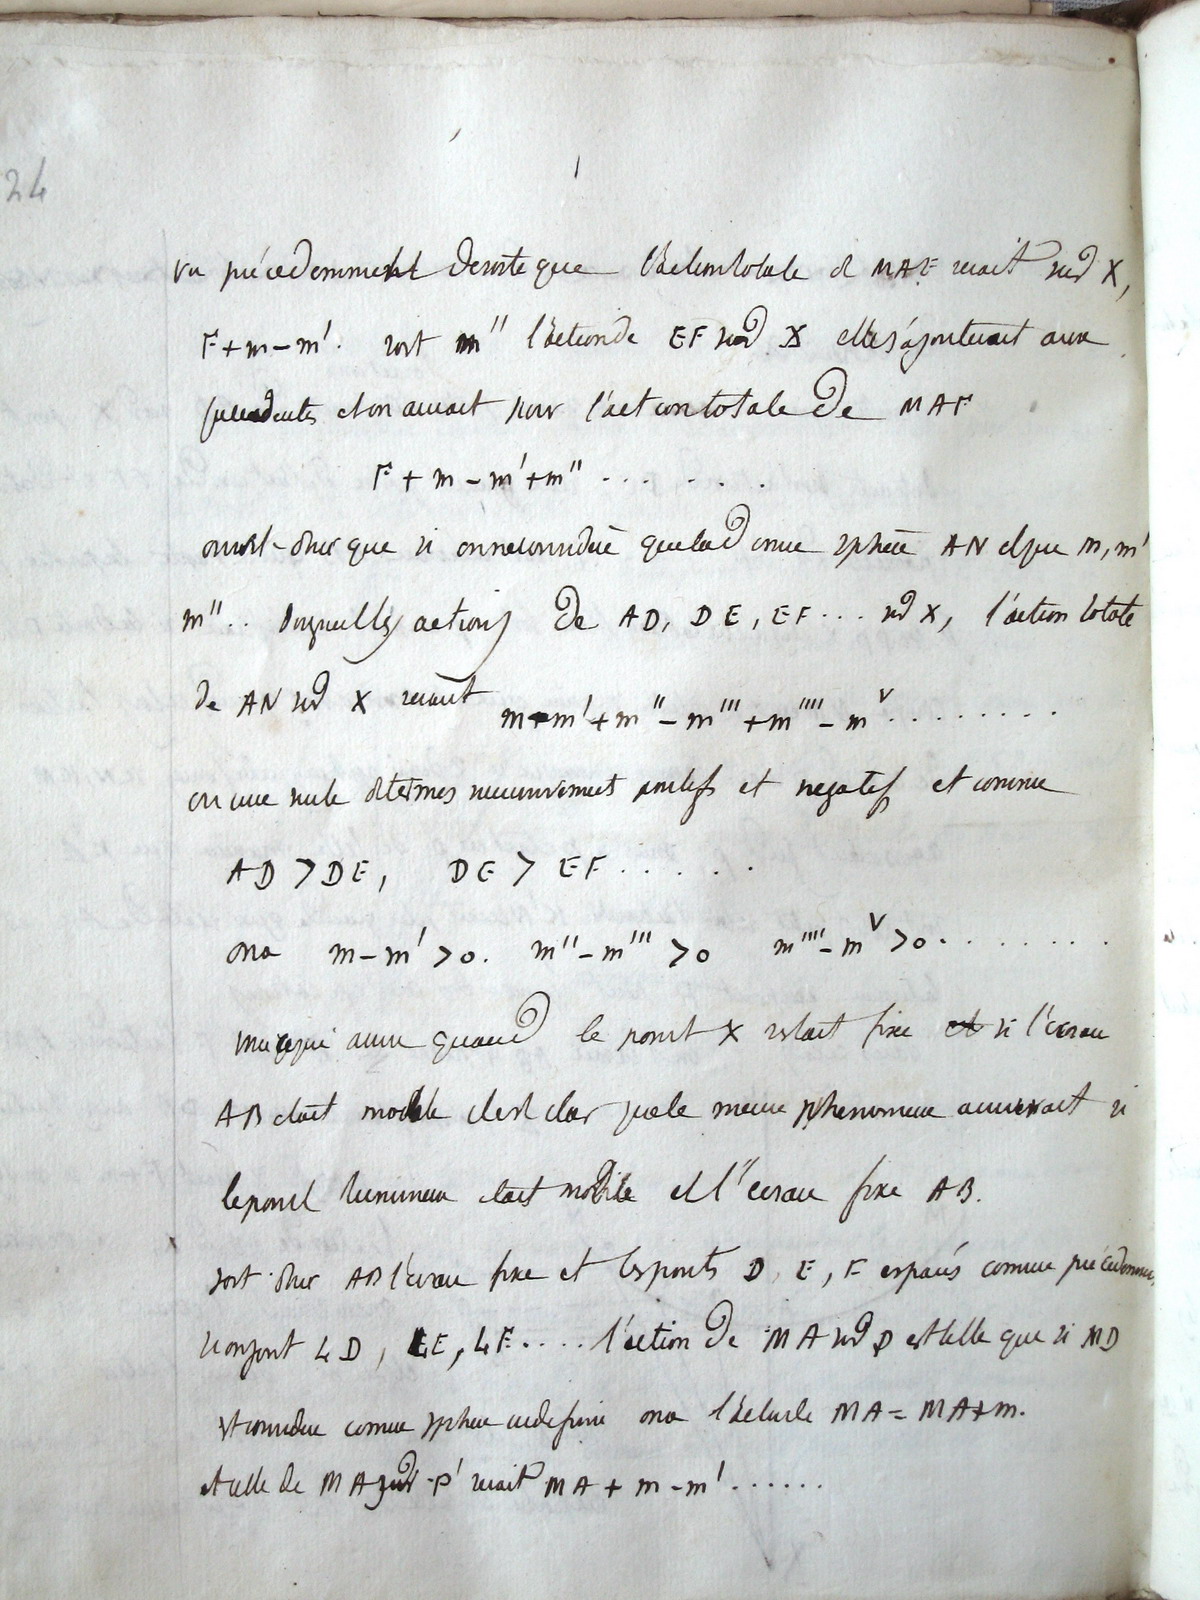 24
vu précédemment de sorte que l'action totale de MAE serait sur X,
F+m-m'. soit m'' l'action de EF sur X elle s'ajouterait aux
précédentes et on aurait pour l'action totale de MAF
F + m - m' + m'' . . . . . .
on voit donc que si on ne considère que la d sphère AN et que m, m'
m'' . . les actions de AD, DE, EF . . . sur X, l'action totale
de AN sur X serait m-m'+m''-m'''+m''''-m^v . . . . . . . .
ou une suite de termes successivement positifs et negatifs et comme
AD > DE, DE > EF . . . . .
on a m-m' > 0. m''-m''' > 0 m''''-m^v > 0 . . . . . . . .
ce qui arrive quand le point X restait fixe et si l'écran
AB était mobile il est clair que le meme phenomene arriverait si
le point lumineux était mobile et l'écran fixe AB.
soit donc AB l'écran fixe et les points D, E, F espacés comme précédemment,
LD, LE, LF . . . . l'action de MA sur P est telle que si MD
est considéré comme sphère indefinie on a l'action de MA = MA+m.
et celle de MA sur P' serait MA + m - m' . . . . . .